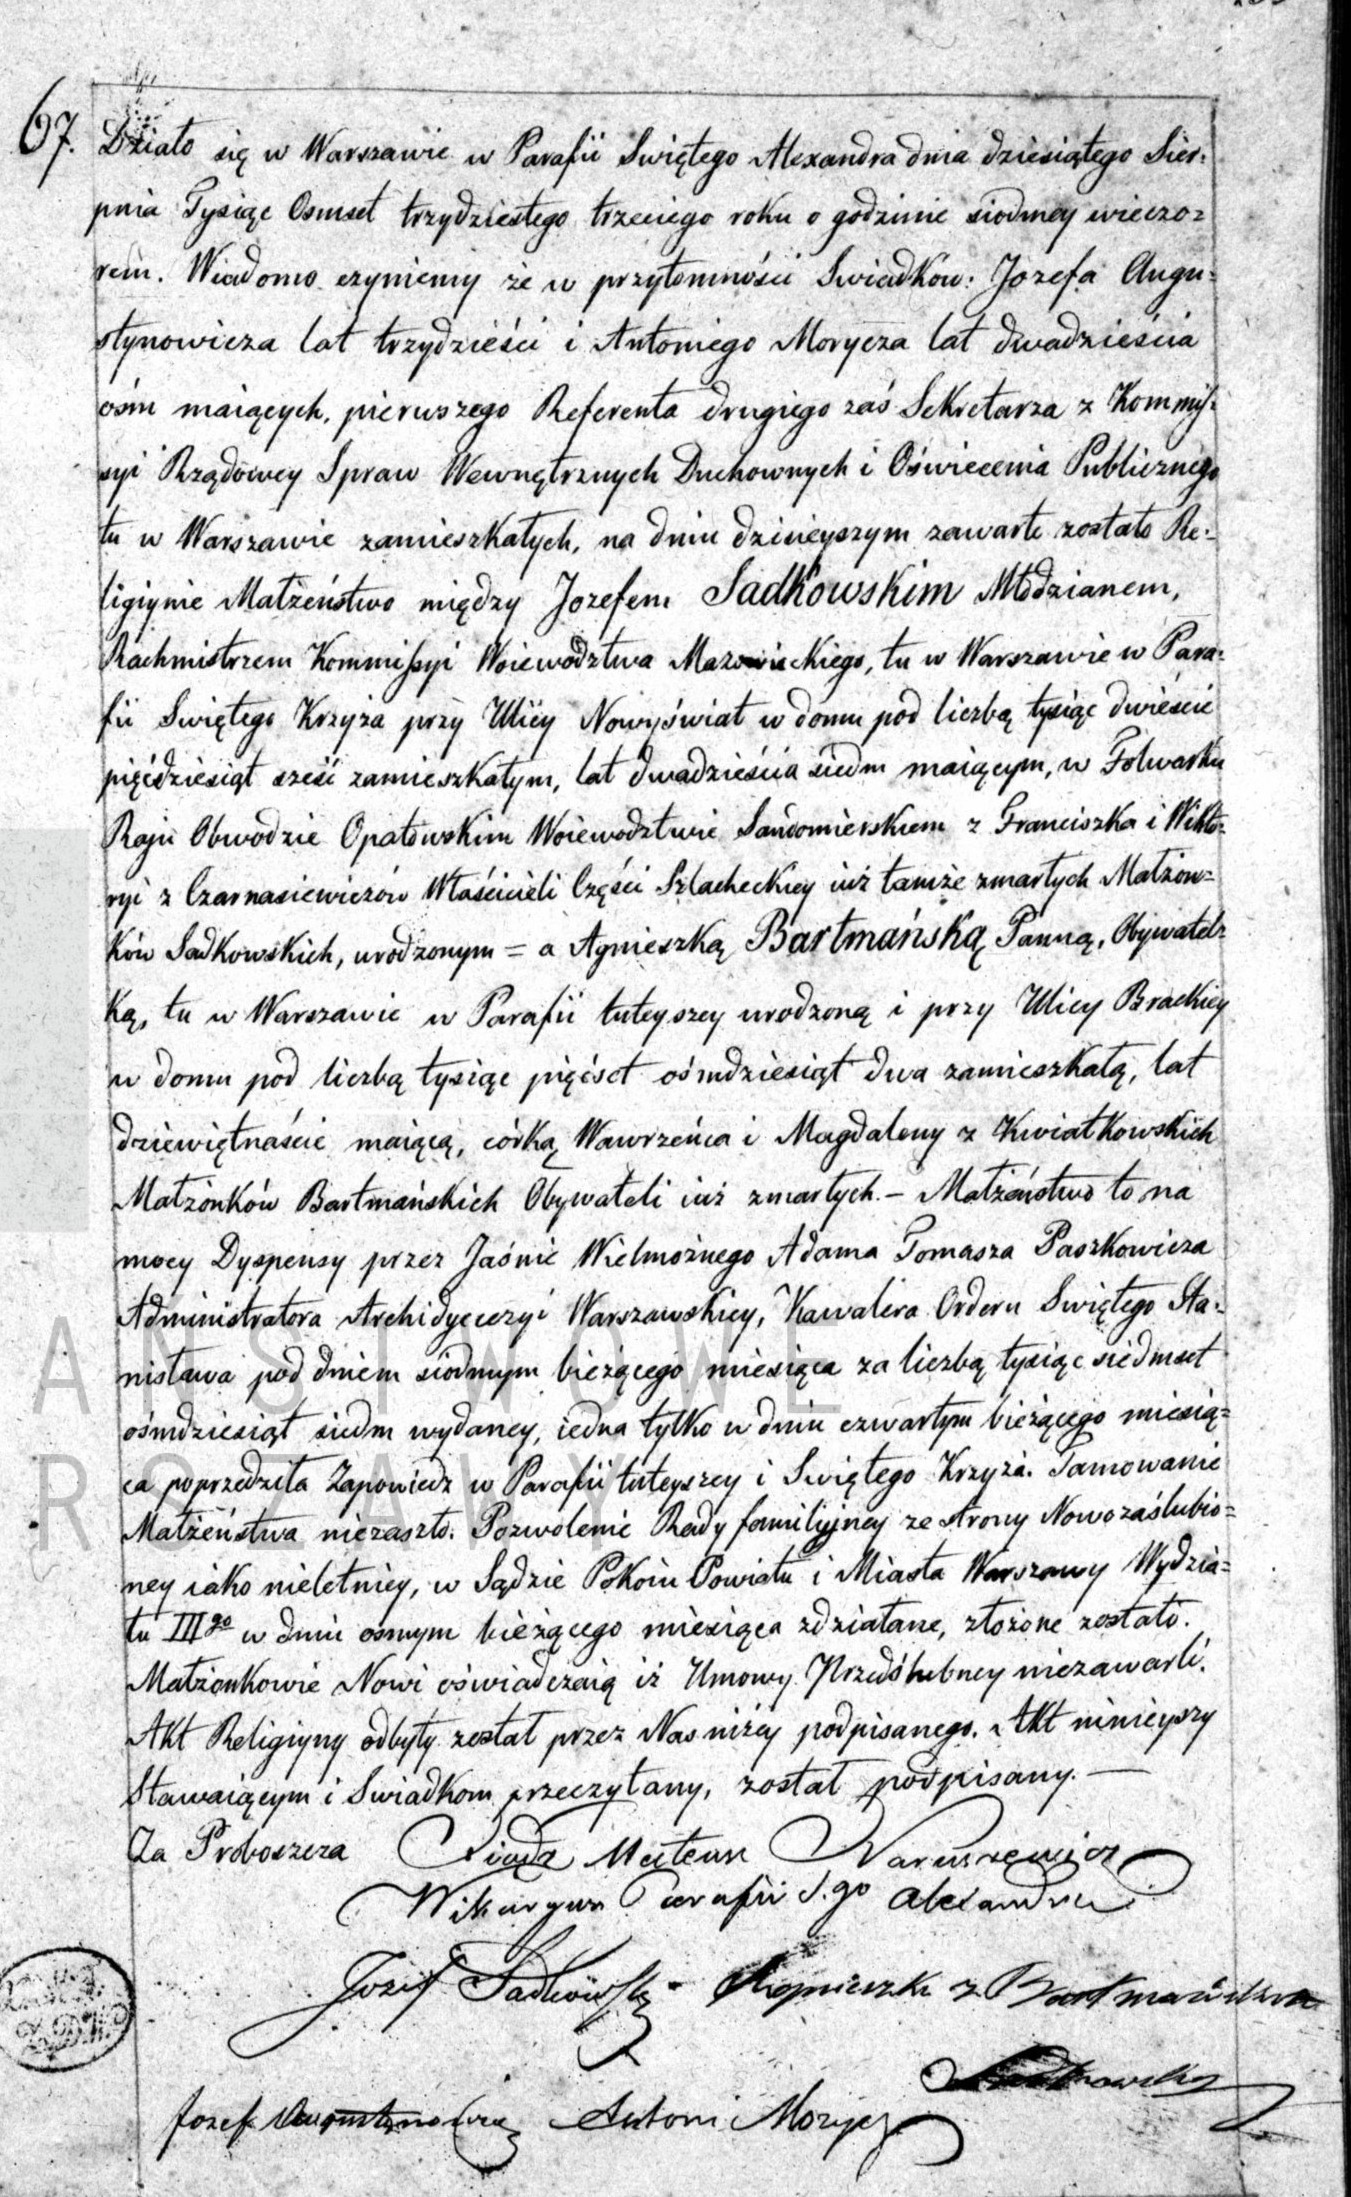 67. Działo się w Warszawie w Parafii Swiętego Alexandra dnia dziesiątego Sier-
pnia Tysiąc Osmset trzydziestego trzeciego roku o godzinie siodmey wieczo-
rem. Wiadomo czyniemy że w przytomności Swiadkow: Jozefa Augu-
stynowicza lat trzydzieści i Antoniego Morycza lat dwadzieścia
ośm maiących, pierwszego Referenta drugiego zaś Sekretarza z Kommis-
syi Rządowey Spraw Wewnętrznych Duchownych i Oświecenia Publicznego
tu w Warszawie zamieszkałych, na dniu dzisieyszym zawarte zostało Re-
ligiynie Małżeństwo między Jozefem Sadkowskim Młodzianem,
Rachmistrzem Kommissyi Woiewodztwa Mazowieckiego, tu w Warszawie w Para-
fii Swiętego Krzyża przy Ulicy Nowyświat w domu pod liczbą tysiąc dwieście
pięćdziesiąt sześć zamieszkałym, lat dwadzieścia siedm maiącym, w Folwarku
Raju Obwodzie Opatowskim Woiewodztwie Sandomierskiem z Franciszka i Wikto-
ryi z Czarnasiewiczów Właścicieli Części Szlacheckiey iuż tamże zmarłych Małżon-
ków Sadkowskich, urodzonym = a Agnieszką Bartmańską Panną, Obywatel-
ką, tu w Warszawie w Parafii tuteyszey urodzoną i przy Ulicy Brackiey
w domu pod liczbą tysiąc pięćset ośmdziesiąt dwa zamieszkałą, lat
dziewiętnaście maiącą, córką Wawrzeńca i Magdaleny z Kwiatkowskich
Małżonków Bartmańskich Obywateli iuż zmarłych. – Małżeństwo to na
mocy Dyspensy przez Jaśnie Wielmożnego Adama Tomasza Paszkowicza
Administratora Archidyecezyi Warszawskiey, Kawalera Orderu Swiętego Sta-
nisława pod dniem siodmym bieżącego miesiąca za liczbą tysiąc siedmset
ośmdziesiąt siedm wydaney, iedna tylko w dniu czwartym bieżącego miesią-
ca poprzedziła Zapowiedz w Parafii tuteyszey i Swiętego Krzyża. Tamowanie
Małżeństwa niezaszło. Pozwolenie Rady familijney ze strony Nowozaślubio-
ney iako nieletniey, w Sądzie Pokoiu Powiatu i Miasta Warszawy Wydzia-
łu III go w dniu osmym bieżącego miesiąca zdziałane, złożone zostało.
Małżonkowie Nowi oświadczaią iż Umowy Przedślubney niezawarli.
Akt Religiyny odbyty został przez Nas niżey podpisanego. Akt ninieyszy
Stawaiącym i Swiadkom przeczytany, został podpisany. —
Za Proboszcza Xiądz Mateusz Naruszewicz
Wikaryusz Parafii S.go Alexandra
Jozef Sadkowski Agnieszka z Bartmańskich
Sadkowska
Jozef Augustynowicz Antoni Morycz
ANSTWOWE
RSZAWY